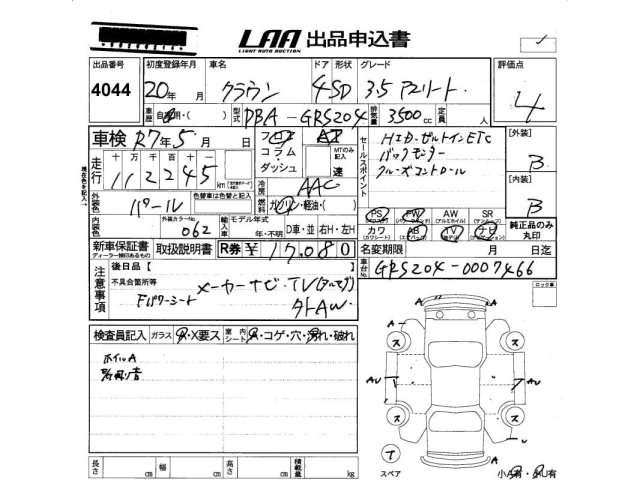 LAA 出品申込書
LIGHT AUTO AUCTION
出品番号 初度登録年月 車名 ドア 形状 グレード 評価点
4044 20年 月 クラウン 4 SD 3.5 アスリート 4
車歴 自・用・( ) 型式 DBA-GRS204 排気量 3500cc 定員 人
車検 R7年5月 日 フロア コラム・ダッシュ AT MTのみ記入 速
セールスポイント HID・ビルトインETC
バックモニター
クルーズコントロール
[外装] B
[内装] B
走行 十万千百十 112245 km
冷房 AAC
燃料 ガソリン・軽油・( )
外装色 パール 色替車は色替と記入
内装色 外装カラーNo 062 輸入車 モデル年式 年・不明 D車・並 右H・左H
PS PW AW SR
カワ AB TV ナビ 純正品のみ丸印
新車保証書 取扱説明書 R券 ¥ 17,080 名変期限 月 日迄
ディーラー捺印あるもの
車台No GRS204-0007466
注意事項 後日品【
不具合箇所等 メーカーナビ・TV
Fパワーシート 外AW
ロック車
検査員記入 ガラス A・X要ス 室内シート A・コゲ・穴・汚れ・破れ
ホイルA
A A ス ス AU AU ス ス U A
テ スペア
長さ cm 幅 cm 高さ cm 積載量 kg
小A有・小U有